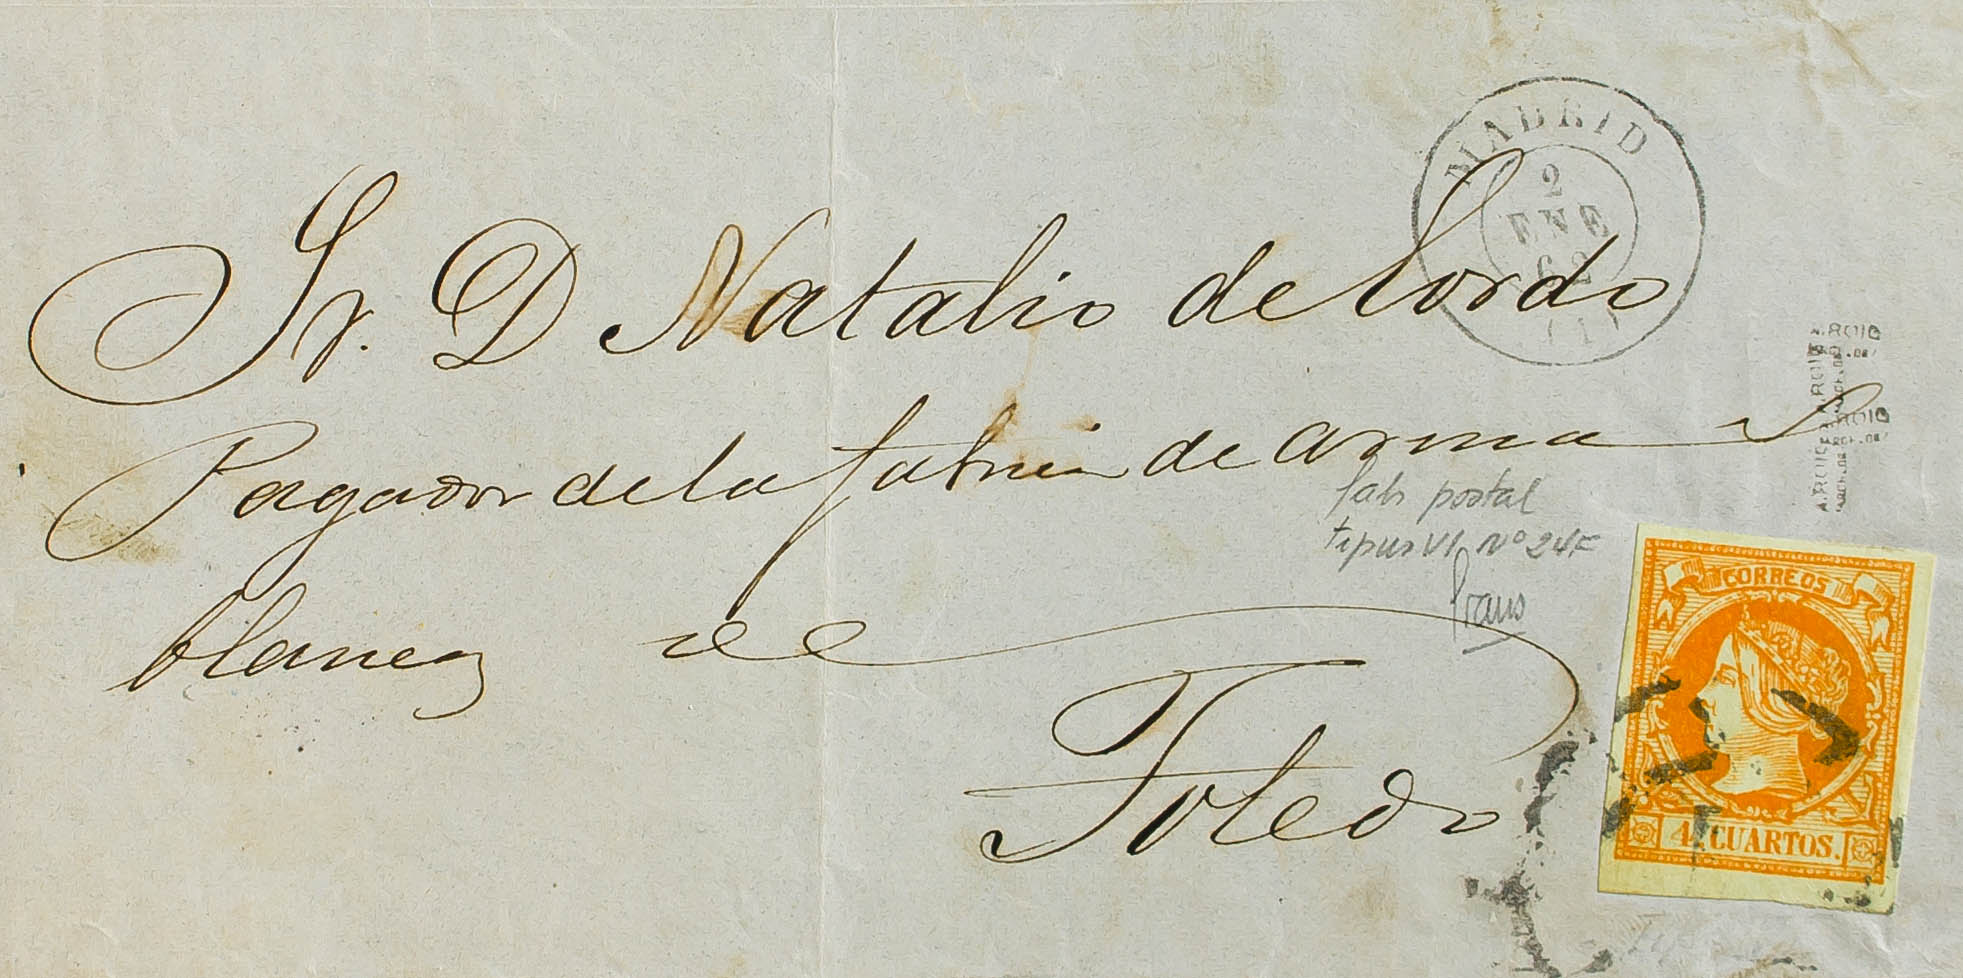 MADRID
2
ENE
62
(1)
Sr. D Natalio de Cordo
Pagador de la fabrica de armas
blancas de
Toledo
fals postal
tipus VI Nº 24F
Graus
A.ROIG
A.ROIG
A.ROIG
A.ROIG
CORREOS
4 CUARTOS.